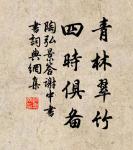 青林翠竹
四時俱备
陶弘景答谢中书
書词典網集